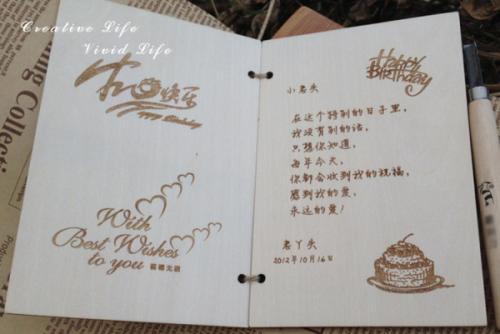 Creative Life
Vivid Life
生日快乐
Happy Birthday
With
Best Wishes
to you
Happy
Birthday
小老头
在这个特别的日子里，
我没有别的话，
只想你知道，
每年今天，
你都会收到我的祝福，
感到我的爱，
永远的爱！
老丫头
2012年10月16日